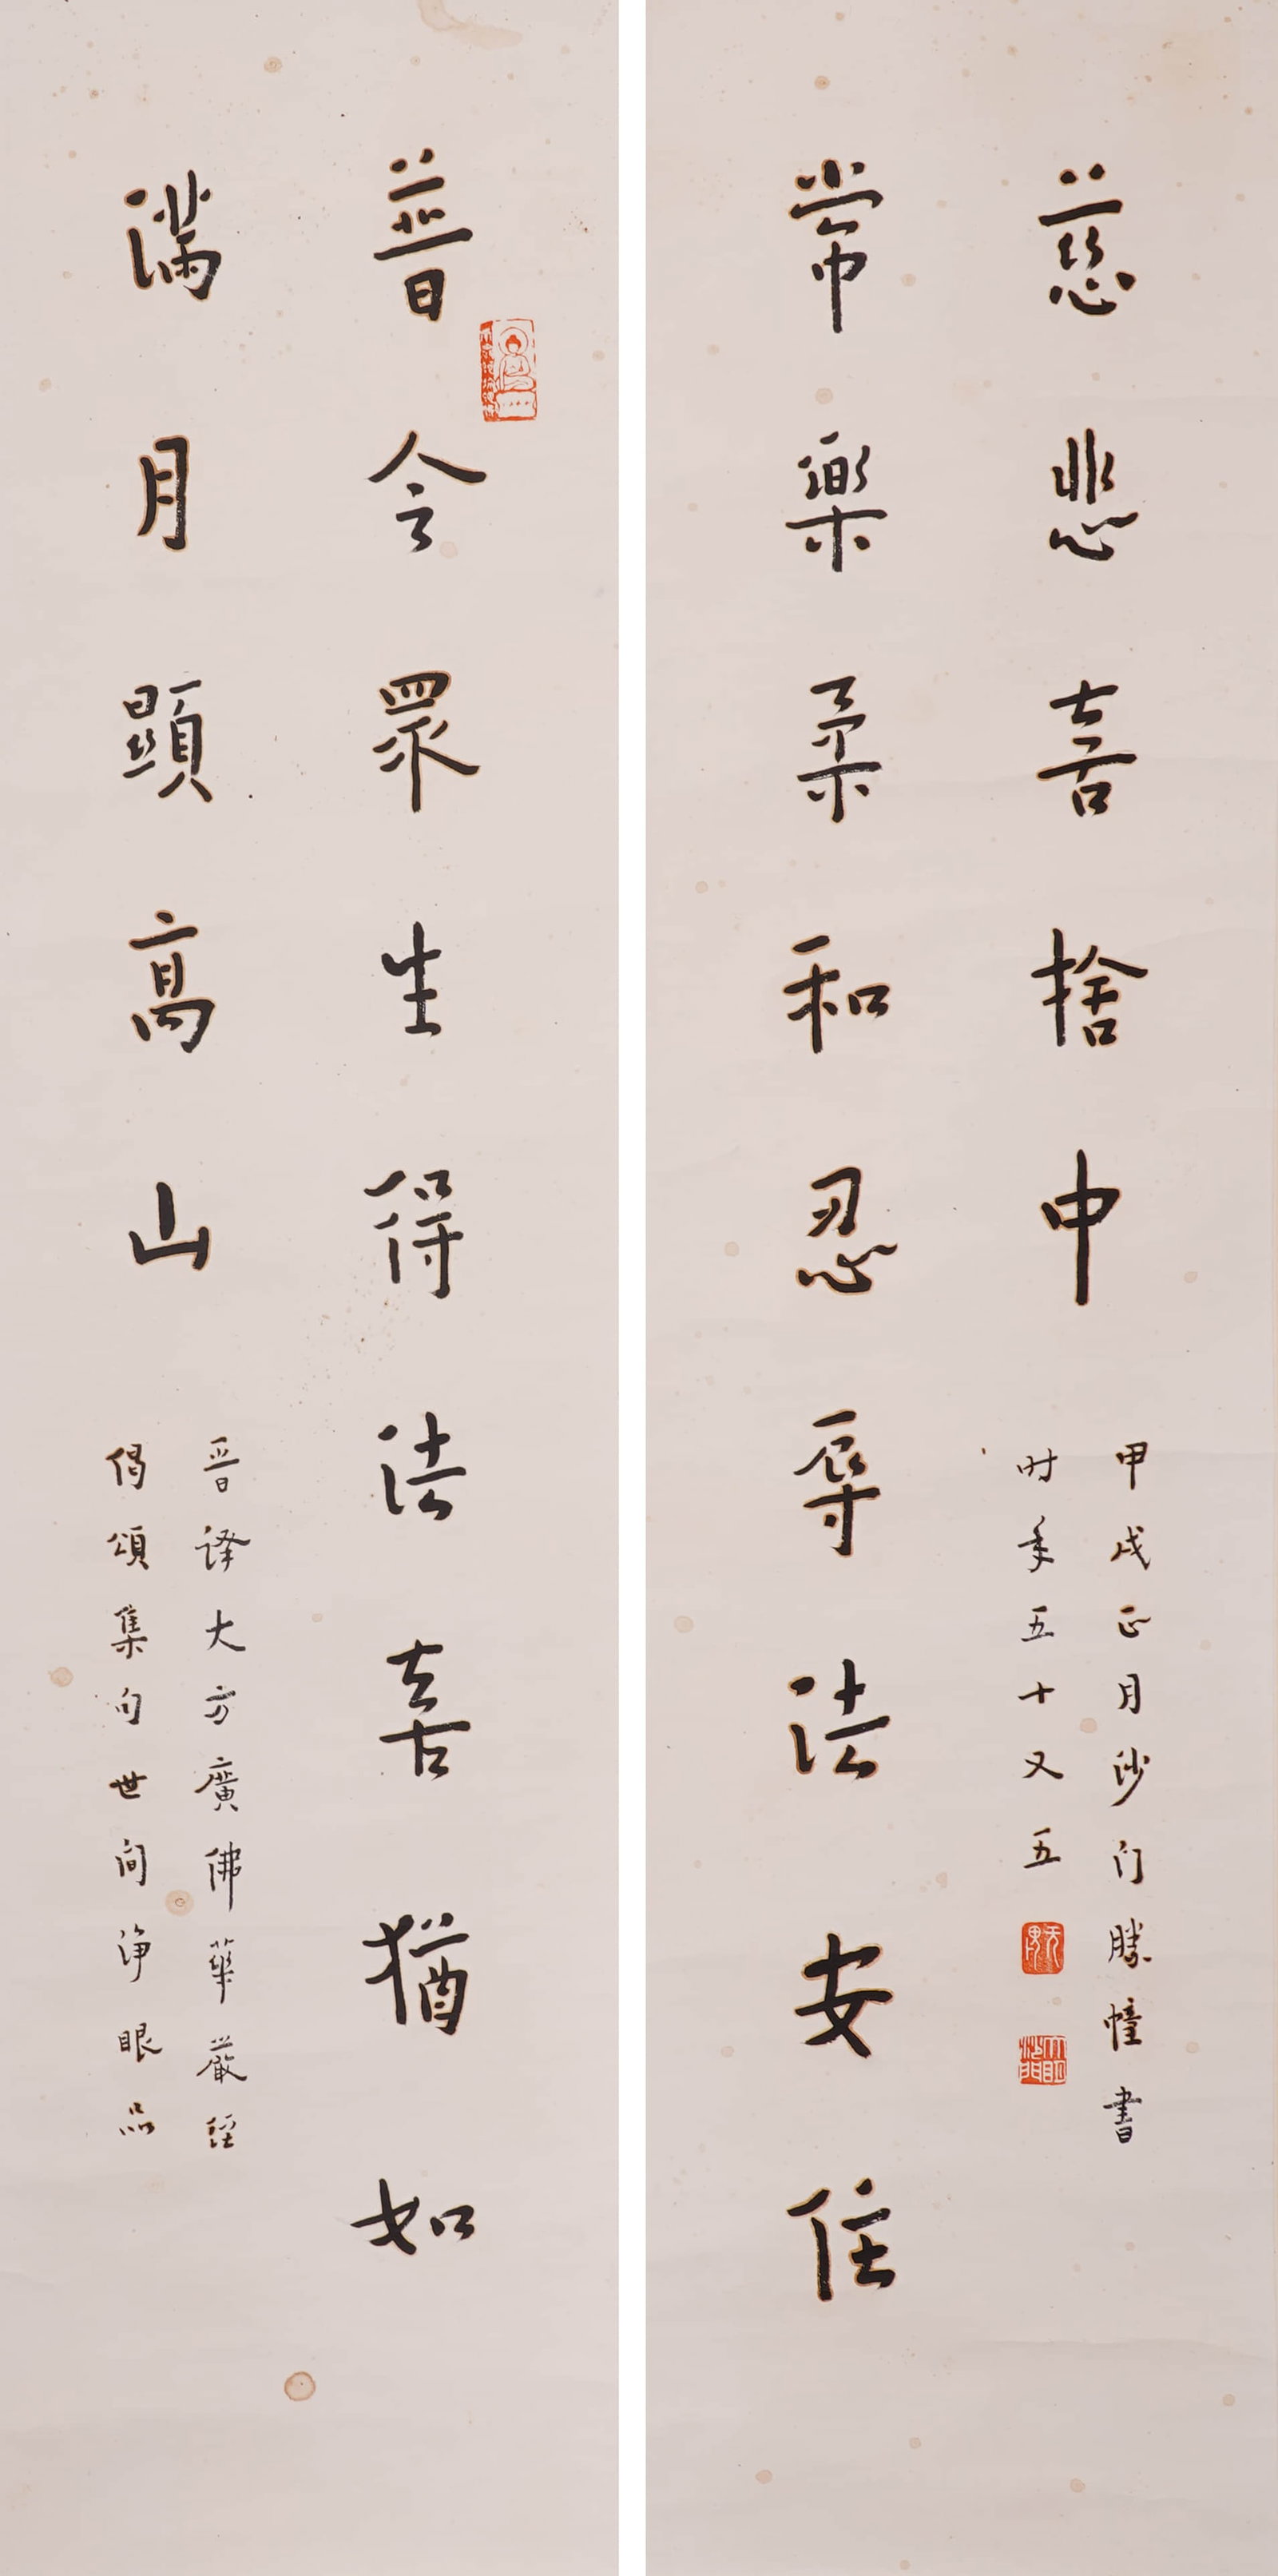 普令眾生得法喜猶如
滿月顯高山
晉译大方廣佛華嚴經
偈頌集句世间淨眼品
常樂柔和忍辱法安住
慈悲喜捨中
甲戌正月沙门勝幢書
时年五十又五